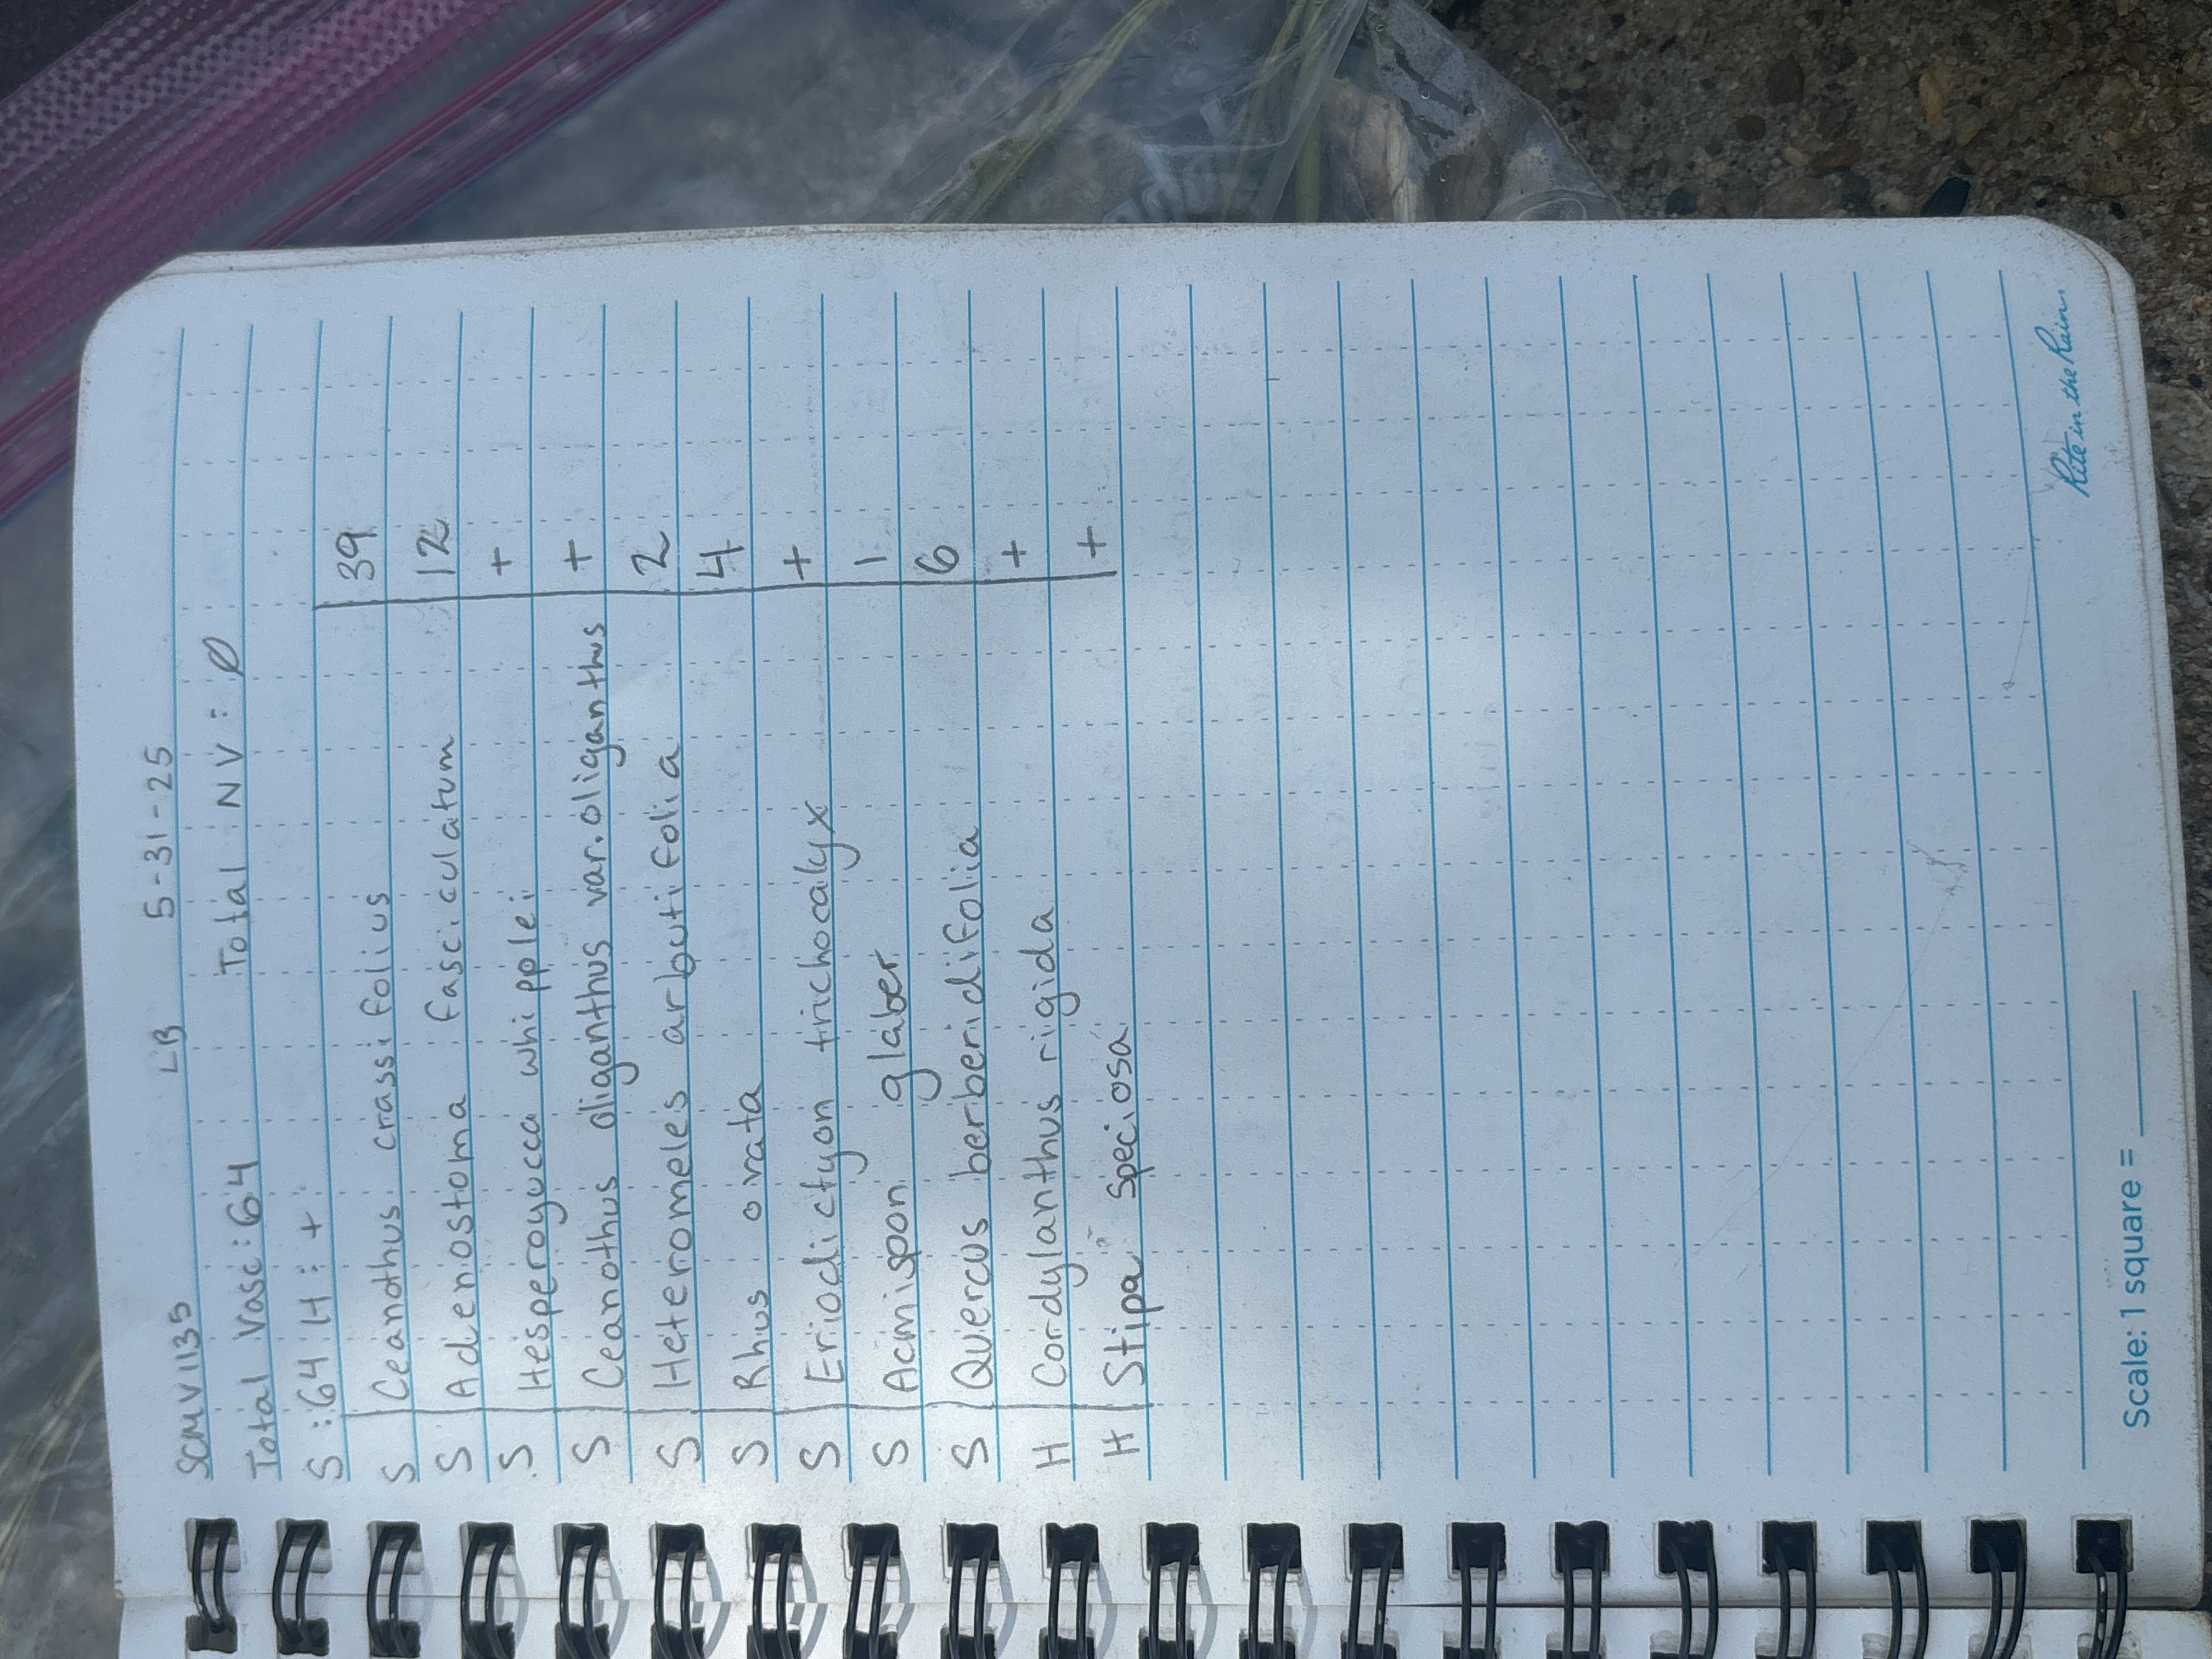 SCMV1135 LB 5-31-25
Total Vasc: 64 Total NV: Ø
S: 64 H: +
S Ceanothus crassifolius 39
S Adenostoma fasciculatum 12
S Hesperoyucca whipplei +
S Ceanothus oliganthus var. oliganthus +
S Heteromeles arbutifolia 2
S Rhus ovata 4
S Eriodictyon trichocalyx +
S Acmispon glaber 1
S Quercus berberidifolia 6
H Cordylanthus rigida +
H Stipa speciosa +
Scale: 1 square = ____ Rite in the Rain